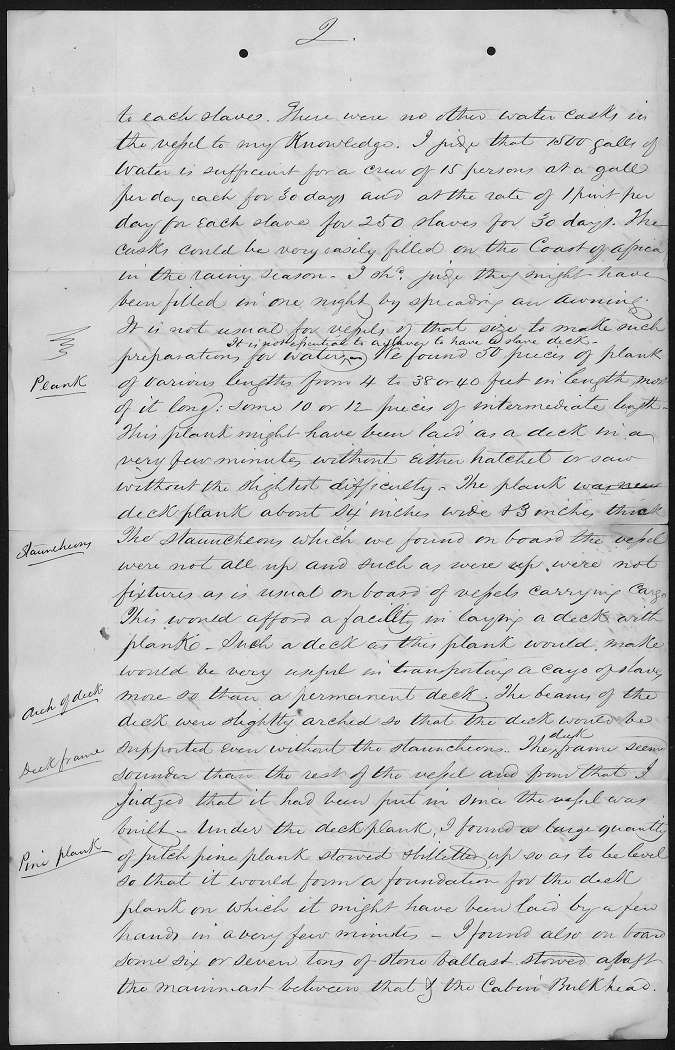 2.
to each slaves. There were no other water casks in
the vessel to my Knowledge. I judge that 1500 galls of
Water is sufficient for a crew of 15 persons at a gall
per day each for 30 days and at the rate of 1 pint per
day for Each slave for 250 slaves for 30 days. The
casks could be very easily filled on the Coast of africa
in the rainy season - I shd. judge they might have
been filled in one night by spreading an awning.
It is not usual for vessels of that size to make such
It is not essential to a slaver to have a slave deck -
preparations for water - We found 50 pieces of plank
Plank
of various lengths from 4 to 38 or 40 feet in length, most
of it long: some 10 or 12 pieces of intermediate length -
This plank might have been laid as a deck in a
very few minutes without Either hatchet or saw
without the slightest difficulty - The plank was new
deck plank about six inches wide & 3 inches thick
Stauncheons
The stauncheons which we found on board the vessel
were not all up and such as were up were not
fixtures as is usual on board of vessels carrying Cargo
This would afford a facility in laying a deck with
plank - Such a deck as this plank would make
would be very useful in transporting a cargo of slaves
Arch of deck
more so than a permanent deck. The beams of the
deck were slightly arched so that the deck would be
supported Even without the stauncheons. The deck frame seemed
Deck frame
sounder than the rest of the vessel and from that I
judged that it had been put in since the vessel was
built - Under the deck plank, I found a large quantity
Pine plank
of pitch pine plank stowed & billetted up so as to be level
so that it would form a foundation for the deck
plank on which it might have been laid by a few
hands in a very few minutes - I found also on board
some six or seven tons of stone ballast stowed abaft
the mainmast between that & the Cabin Bulkhead.